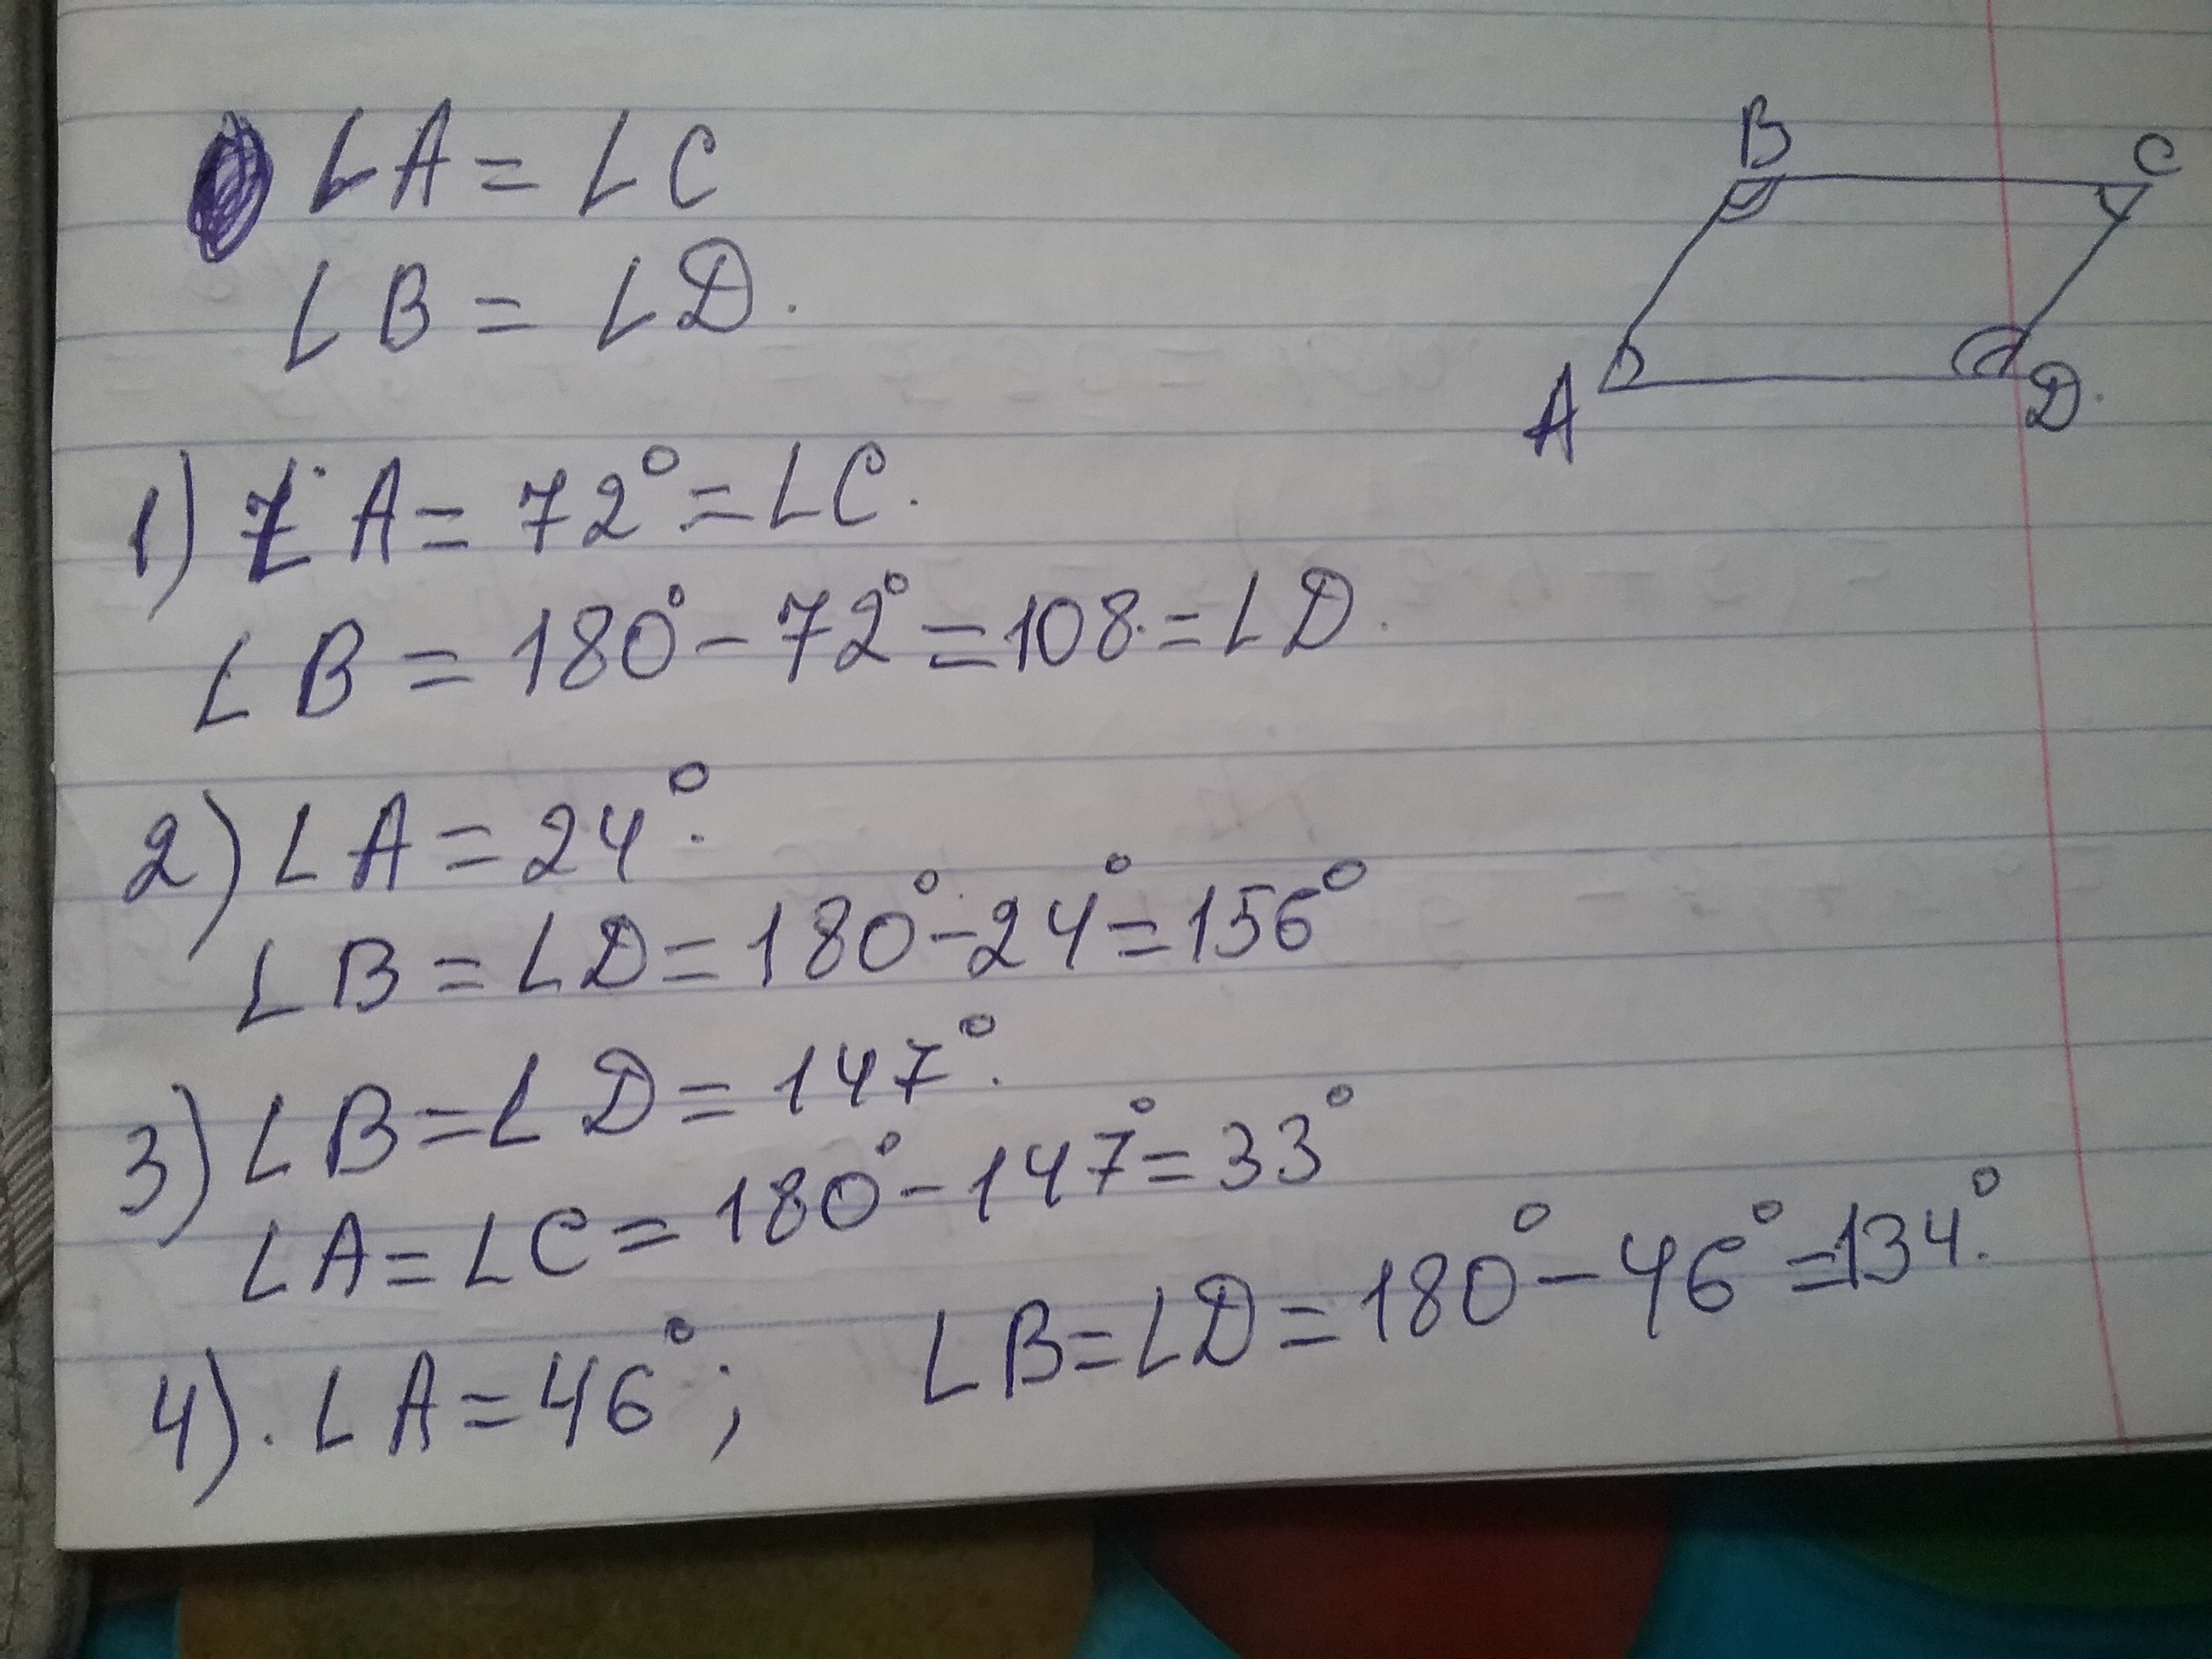 ∠A = ∠C
∠B = ∠D.
B
C
A
D.
1) ∠A = 72° = ∠C.
∠B = 180° - 72° = 108. = ∠D.
2) ∠A = 24°.
∠B = ∠D = 180° - 24° = 156°
3) ∠B = ∠D = 147°.
∠A = ∠C = 180° - 147° = 33°
4). ∠A = 46°; ∠B = ∠D = 180° - 46° = 134°.